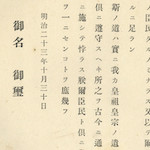 ノ臣民タルノミナラス又
ルニ足ラン
斯ノ道ハ實ニ我カ皇祖皇宗ノ遺
倶ニ遵守スヘキ所之ヲ古今ニ通
ニ施シテ悖ラス朕爾臣民ト倶ニ
ヲ一ニセンコトヲ庶幾フ
明治二十三年十月三十日
御名 御璽